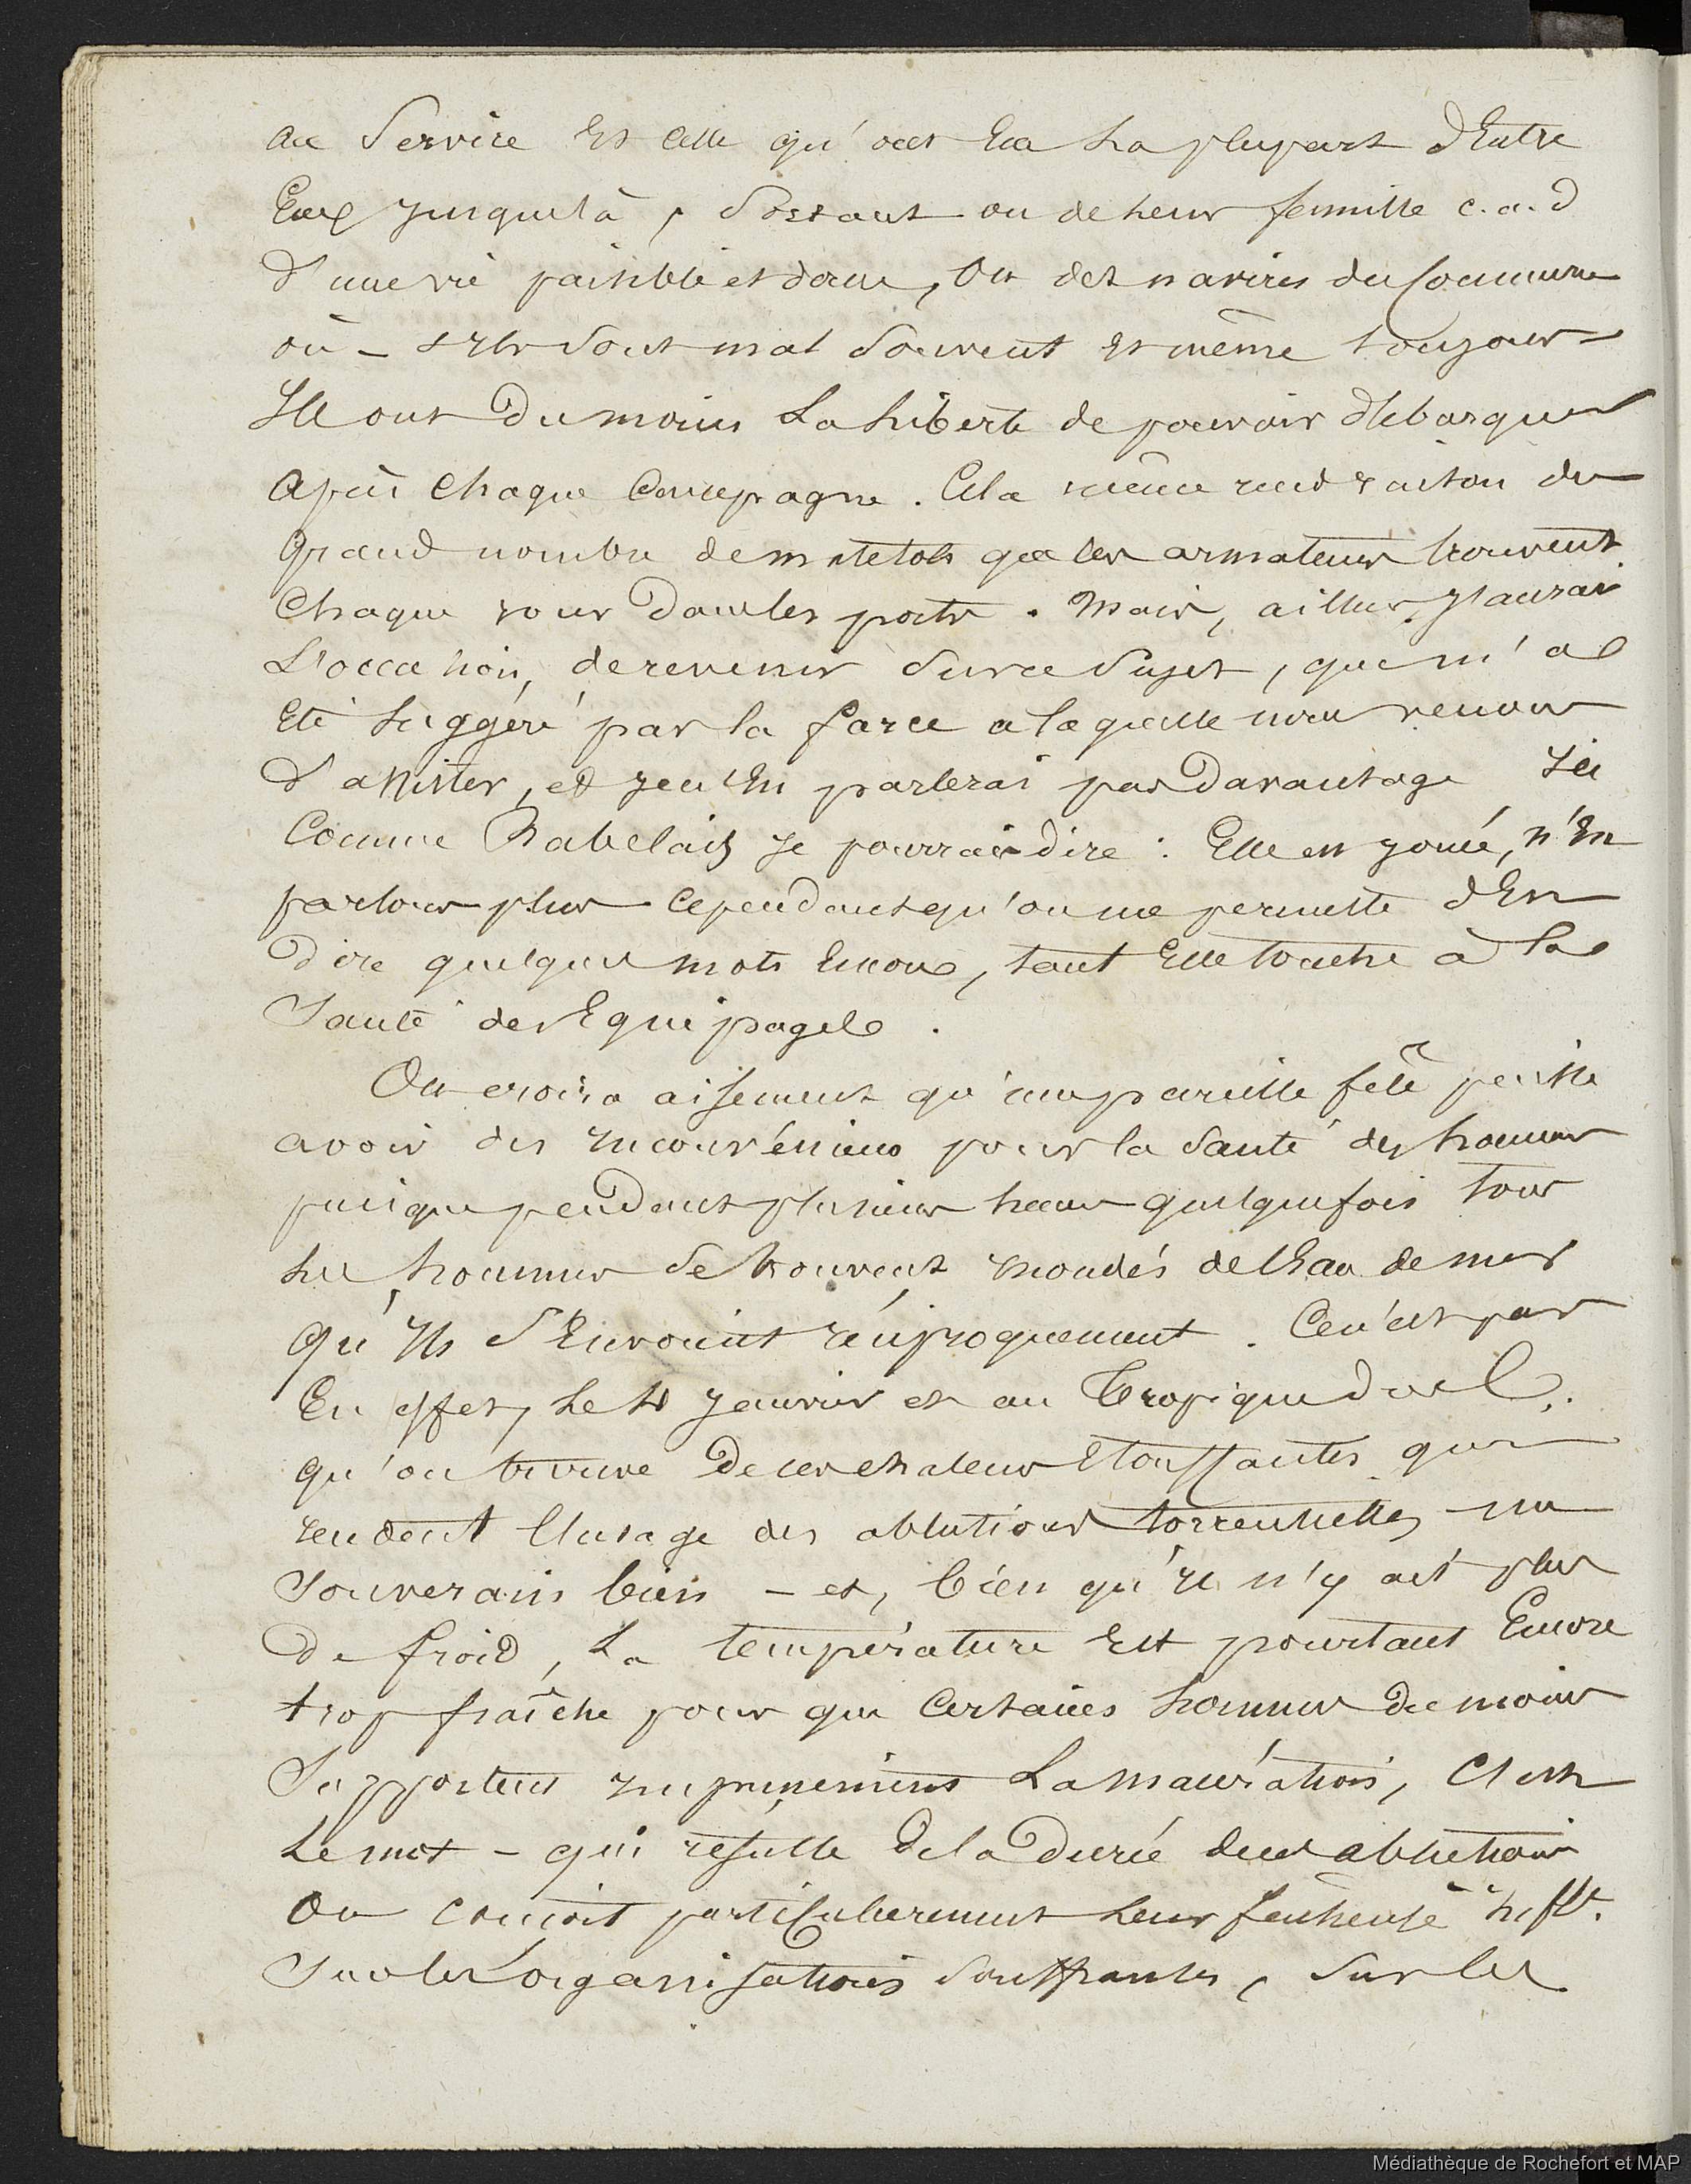 au Service Et celle qu'ont Eu la plupart d'Entre
Eux jusque là, sortant ou de leur famille c.a.d
d'une vie paisible et douce, Ou des navires du Commerce
où – s'Ils sont mal souvent Et même toujours –
Ils ont Du moins La liberté de pouvoir débarquer
après chaque Campagne. Cela même rend raison du
grand nombre de matelots que les armateurs trouvent
chaque jour Dans les ports. Mais, ailleurs, j'aurai
L'occasion, de revenir sur ce sujet, que m'a
Eté suggéré par la farce a laquelle nous venons
d'assister, et je n'En parlerai pas Davantage Ici
Comme Rabelais je pourrais dire : Elle est jouée, n'En
parlons plus Cependant qu'on me permette d'En
dire quelques mots Encore, tant Elle touche à la
Santé des Equipages.
On croira aisement qu'une pareille fête puisse
avoir des Inconvéniens pour la santé des hommes
puisque pendant plusieurs heures quelquefois tous
les hommes se trouvent inondés de l'Eau de mer
qu'Ils s'Envoient réciproquement. Ce n'est pas
En effet, le Janvier et au Tropique du C.
qu'on trouve De ces chaleurs Etouffantes qui
rendent l'usage des ablutions torrentielles un
Souverain bien – et, bien qu'Il n'y ait plus
De froid, La température Est pourtant Encore
trop fraîche pour que Certaines hommes Du moins
Supportent Impunément La macération, C'est
Le mot – qui résulte De la Durée des ablutions
On conçoit particulierement leur facheuse infl.
Sur les organisations souffrantes, sur les
Médiathèque de Rochefort et MAP